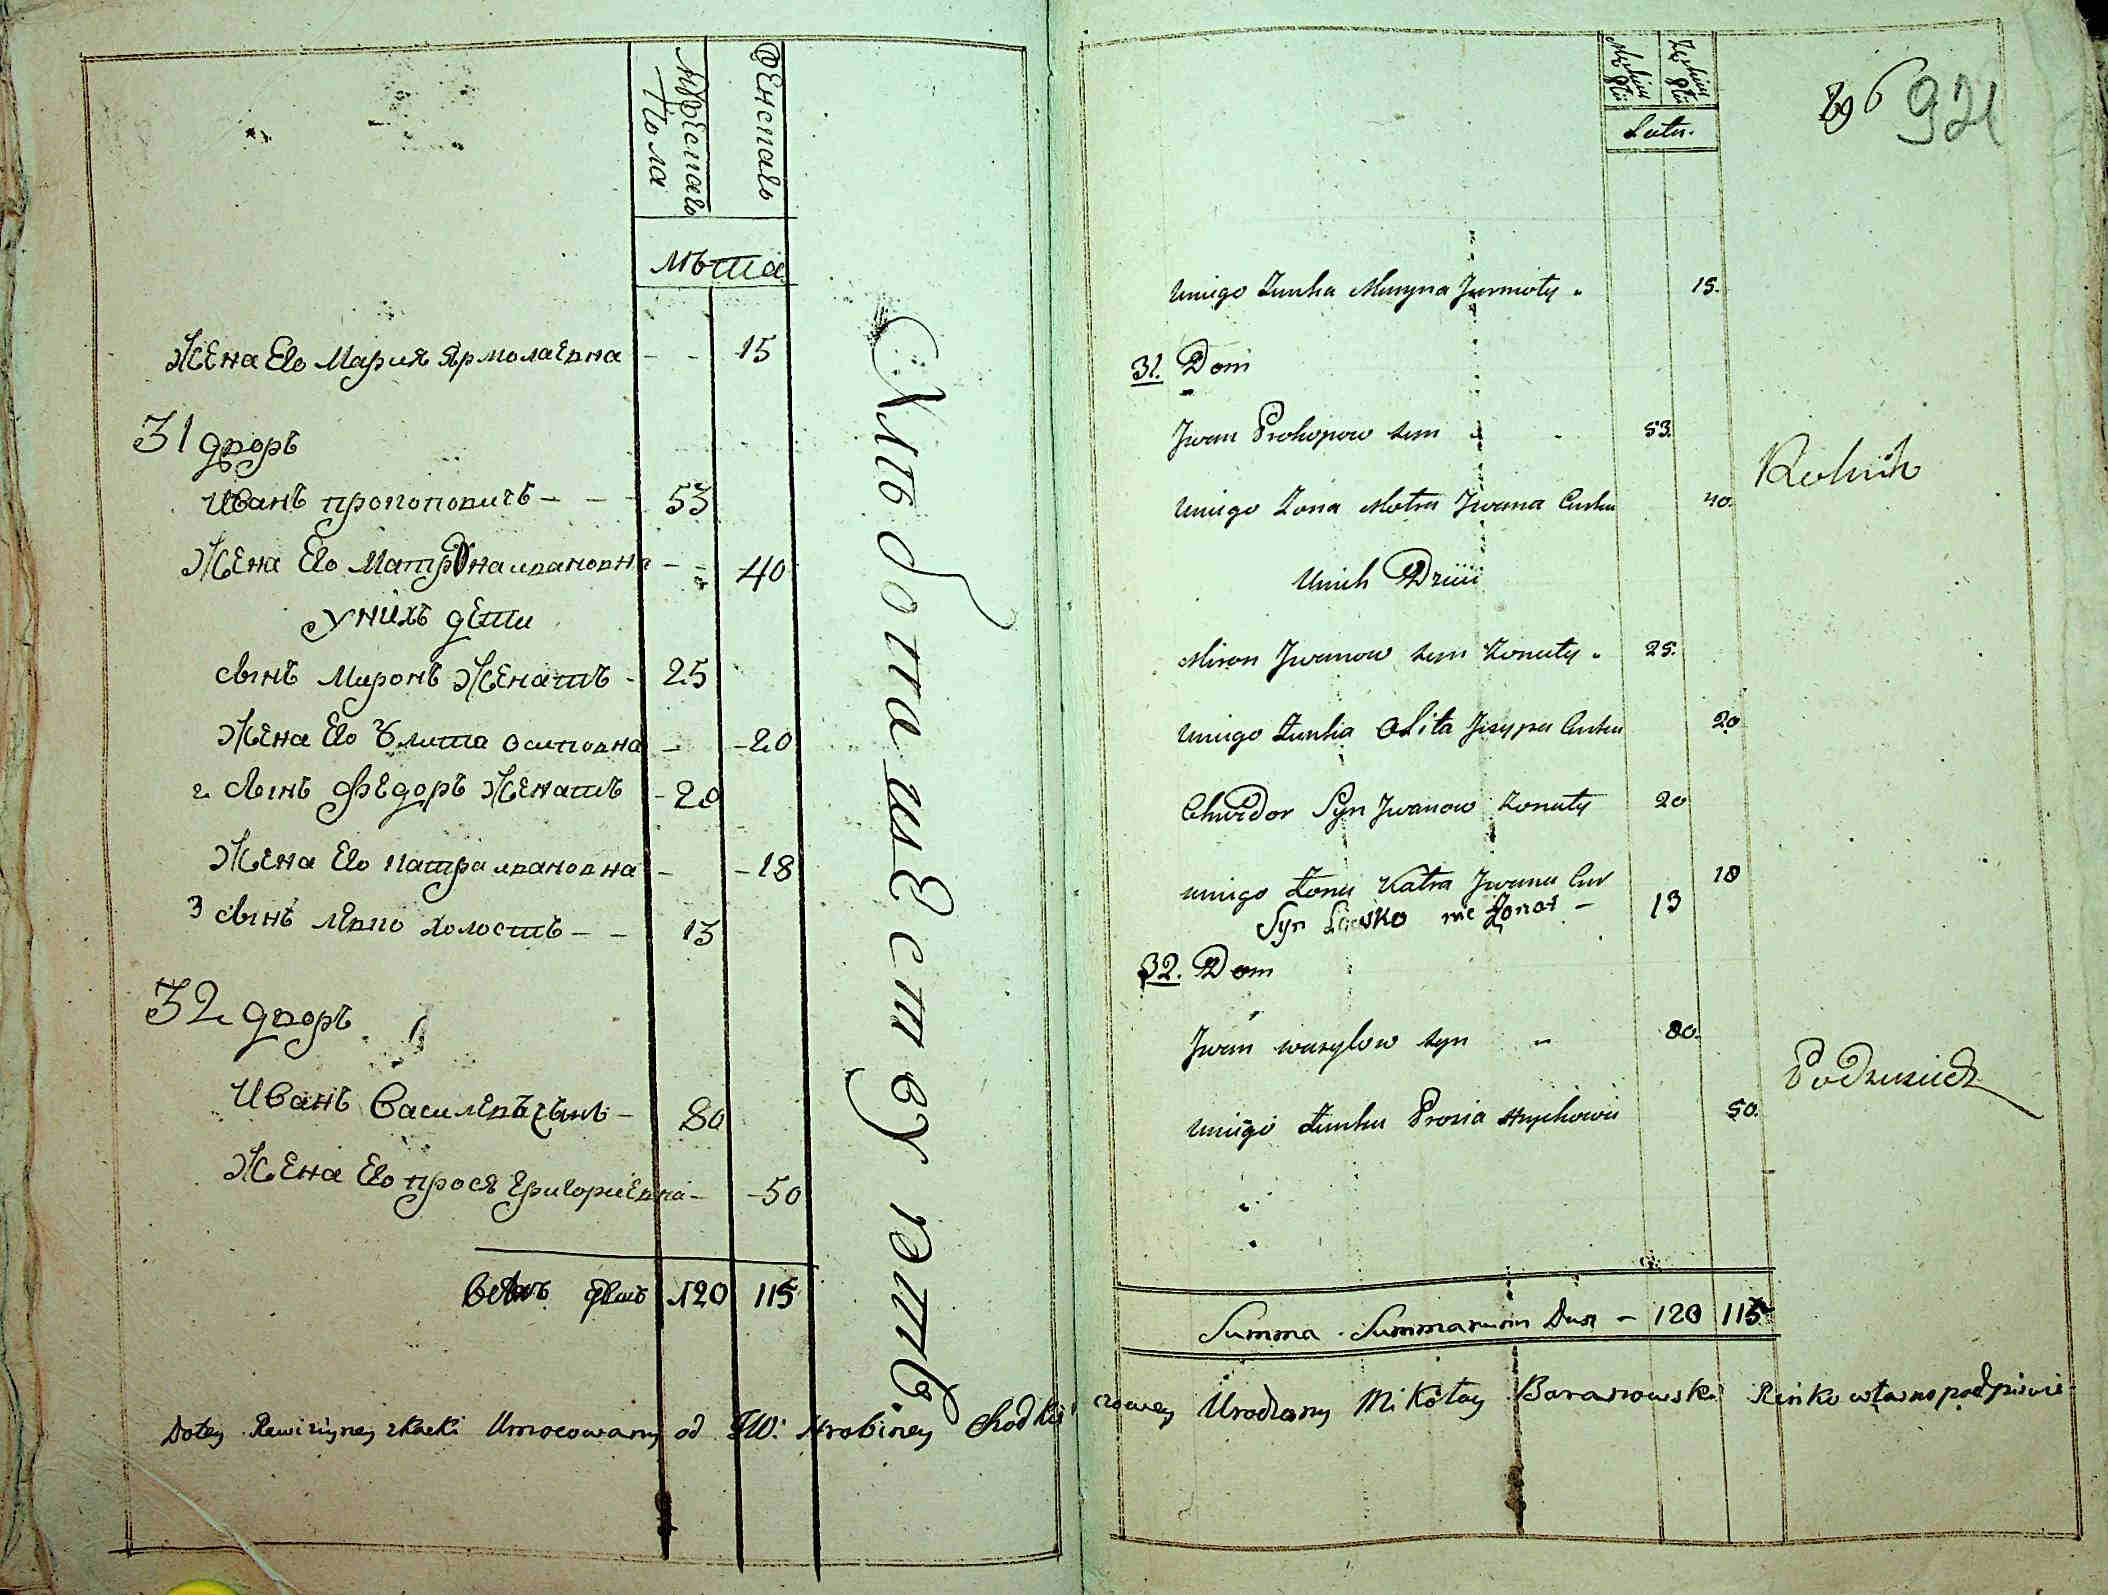 Мужескаго Пола
Женскаго
Лѣта
Жена Его Мария Ярмолаевна - - 15
31 дворъ
Иванъ прокоповичъ - - - 53
Жена Его Матрона ивановна - - 40
у нихъ дѣти
Сынъ Миронъ Женатъ - 25
Жена Его Улита осиповна - - 20
2 Сынъ Федоръ Женатъ - 20
Жена Его катра ивановна - - 18
3 Сынъ Левко холостъ - - 13
32 дворъ
Иванъ Василевъ сынъ - 80
Жена Его прося григориевна - - 50
Всѣхъ душъ 120 115
Хлѣбопашествуютъ
921
Latu.
Uniego Żonka Maryna Jarmoły 15.
31. Dom
Iwan Prokopow syn 53.
Rolnik
Uniego Żona Motra Iwana Curka 40.
Unich Dzieci
Miron Iwanow syn Żonaty 25.
Uniego Żonka Olita Josypa Curka 20
Chwedor Syn Iwanow Żonaty 20
Uniego Żona Katra Iwana Cur 18
Syn Lewko nie Żonat - 13
32. Dom
Iwan wasylow syn 80.
Uniego Żonka Prosia Hrychowa 50.
Summa Summarum Dusz - 120 115
Dotey Rewizyiney skaski Umocowany od JW: Hrabiney Chodkiewiczowey Urodzony Mikołay Baranowski Ręnko własno podpisuię